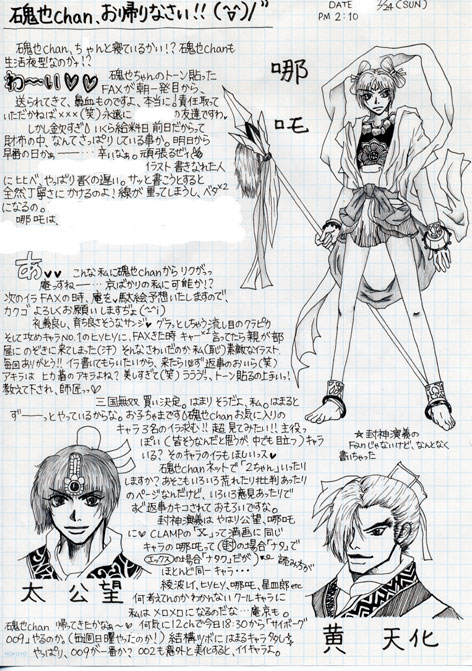 磈也chan、お帰りなさい!!(^ ^)/"
DATE 3/24(SUN)
PM 2:10
磈也chan、ちゃんと寝ているかい!?磈也chanも
生活夜型なのか!?
わ〜い♡♡ 磈也ちゃんのトーン貼った
FAXが朝一発目から、
送られてきて、鼻血ものですよ、本当に♪責任取って
いただかねば×××(笑)永遠に 友達ですわ、
しかし金欠すぎ いくら給料日前日だからって
財布の中、なんてさっぱりしている事か。明日から
早番の日かぁ……辛いなぁ。頑張るぜィ
イラスト書きなれた人
にヒヒべ、やっぱり書くの遅い。サッと書こうとすると
全然丁寧さにかけるのよ!線が重ってしまうし、ベタ×2
になるの。
哪吒は、
哪
吒
あ♡♡ こんな私に磈也chanからリクがっ
庵すねー…京ばかりの私に可能か!?
次のイラFAXの時、庵を♡駄絵予想いたしますので、
カクゴよろしくお願いしますだょ(^-^)
礼義良く、育ち良さそうなサンジ♡グラっとしちゃう流し目のクラピカ
そして攻めキャラNo.1のヒソヒソに、FAXきた時キャー××言ってたら親が部
屋にのぞきに来てしまった(汗)そんなさわいだのか私(恥)素敵なイラスト
毎回ありがとう!!イラ書いてもらいたいから、来たらいぱず返事のおいら(笑)
アキラは ヒカ碁のアキラよね?美しすぎて(笑)ラララ♪、トーン貼るの上手いっ!
教えて下され、師匠っ♡
三国無双買い決定。はまりそうだょ、私。はまると
ずーっとやっているからな。おろちゃまです 磈也chanお気に入りの
キャラ3名のイラ求む!!超見てみたい!!主役っ
ぽい(皆そうなんだと思うが中でも目立つ)キャラ
いる?そのキャラのイラもほしいスッ♡
磈也chanネットで「2ちゃん」いったり
しますか?あそこもいろいろ荒れたり批判あったり
のページなんだけど、いろいろ意見あったりで
返事カキコされておもろいですな。
封神演義はやはり公望、哪吒
に♡CLAMPの「X」って漫画に同じ
キャラの哪吒って(封)の場合「ナタ」で
エックスの場合「ナタク」だが
読み方が
ほとんど同一キャラ…
綾波レイ、ヒソヒソ、哪吒、星四郎etc
何考えてんのかわかんないクールキャラに
私はメロメロになるのだな…庵京も。
☆封神演義の
Fanじゃないけど、なんとなく
書いちゃった
太公望
黄 天化
磈也chan 帰ってきたかなぁ〜♡何気に12chで今日18:30から「サイボーグ
009」やるのか。(毎週日曜やったのか!)結構ツボにはまるキャラ多し
やっぱり、009が一番か?002も意外と美化すると、イイキャラよ。